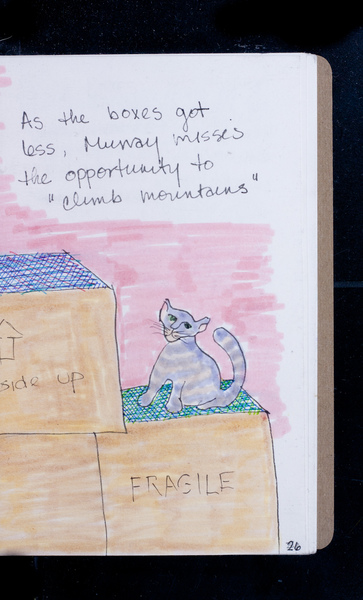 As the boxes got
less, Murray misses
the opportunity to
"climb mountains"
side up
FRAGILE
26